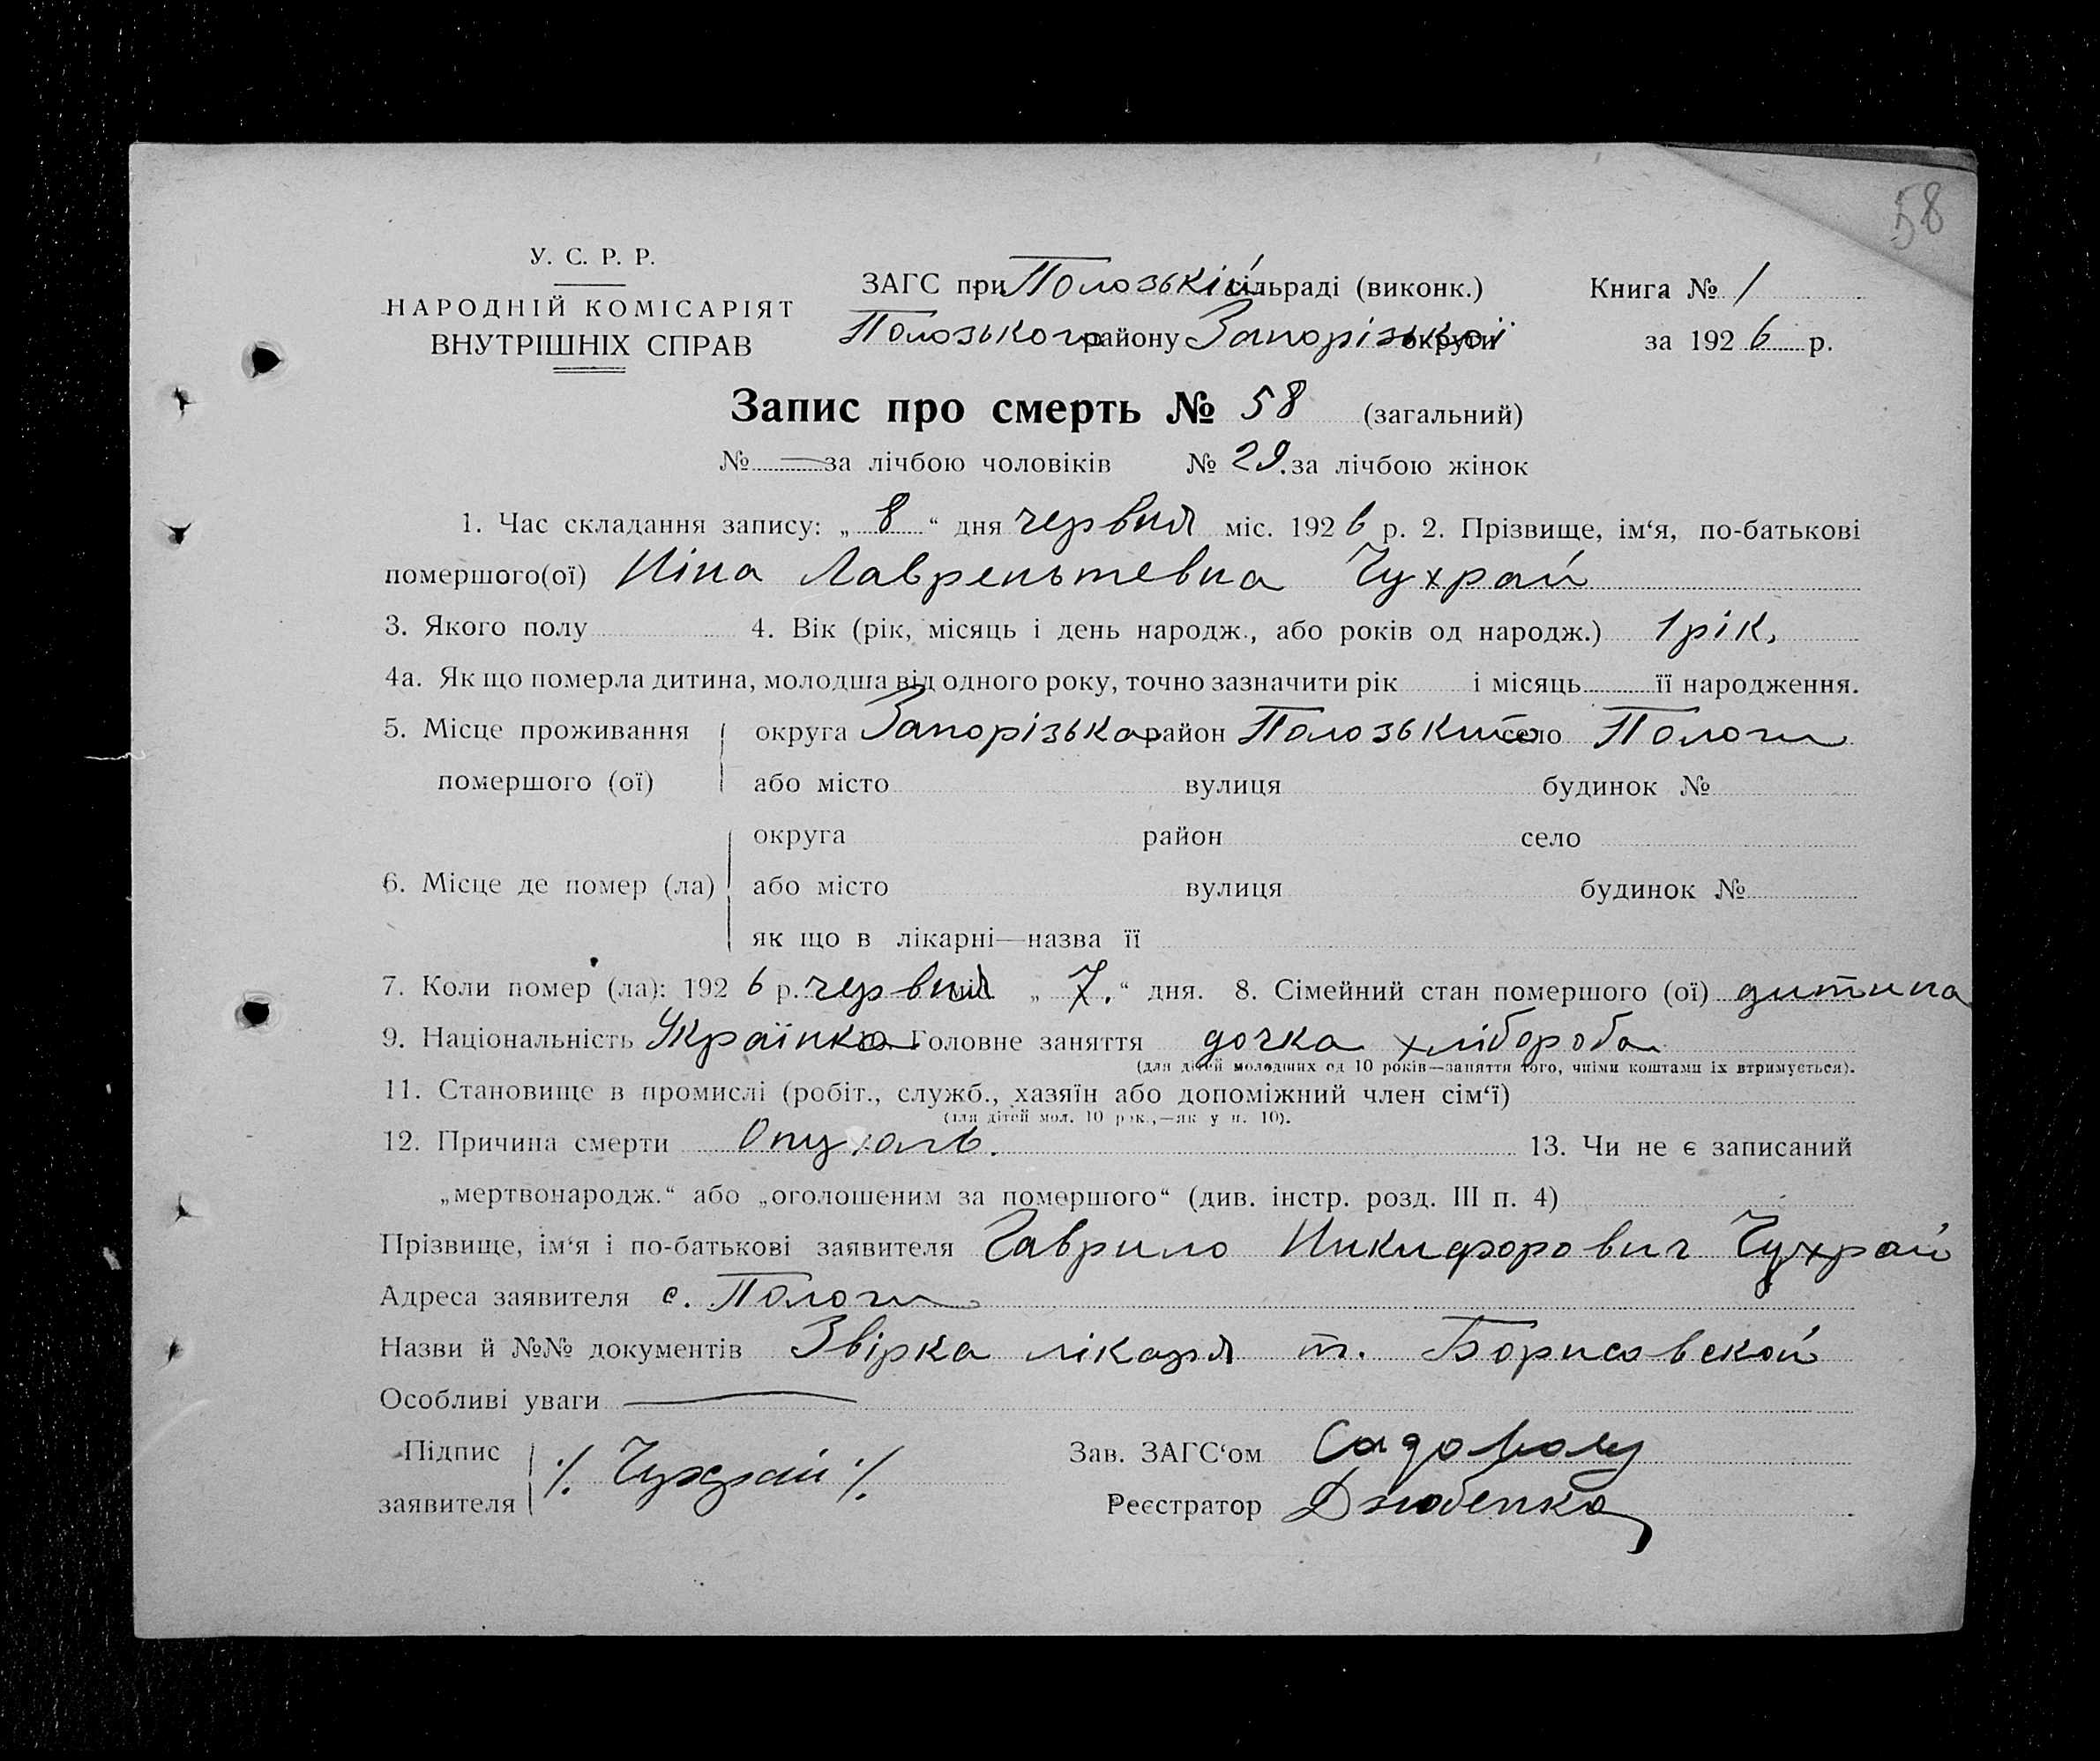 58
У. С. Р. Р.
НАРОДНІЙ КОМІСАРІЯТ
ВНУТРІШНІХ СПРАВ
ЗАГС при Полозькій сільраді (виконк.)
Полозького району Запорізької округи
Книга № 1
за 1926 р.
Запис про смерть № 58 (загальний)
№ — за лічбою чоловіків № 29. за лічбою жінок
1. Час складання запису: „8“ дня червня міс. 1926 р. 2. Прізвище, ім‘я, по-батькові
помершого(ої) Ніна Лаврентьевна Чухрай
3. Якого полу 4. Вік (рік, місяць і день народж., або років од народж.) 1 рік,
4а. Як що померла дитина, молодша від одного року, точно зазначити рік і місяць її народження.
5. Місце проживання округа Запорізька район Полозький село Пологи
помершого (ої) або місто вулиця будинок №
округа район село
6. Місце де помер (ла) або місто вулиця будинок №
як що в лікарні—назва її
7. Коли помер (ла): 1926 р. червня міс. „7.“ дня. 8. Сімейний стан помершого (ої) дитина
9. Національність Українка Головне заняття дочка хлібороба
(для дітей молодших од 10 років—заняття того, чиїми коштами їх втримується).
11. Становище в промислі (робіт., служб., хазяїн або допоміжний член сім‘ї)
(для дітей мол. 10 рок.,—як у п. 10).
12. Причина смерти Опухоль. 13. Чи не є записаний
„мертвонародж.“ або „оголошеним за помершого“ (див. інстр. розд. III п. 4)
Прізвище, ім‘я і по-батькові заявителя Гаврило Никифорович Чухрай
Адреса заявителя с. Пологи
Назви й №№ документів Звірка лікаря т. Борисовской
Особливі уваги —
Підпис
заявителя ./. Чухрай ./.
Зав. ЗАГС‘ом
Реєстратор Дзюбенко